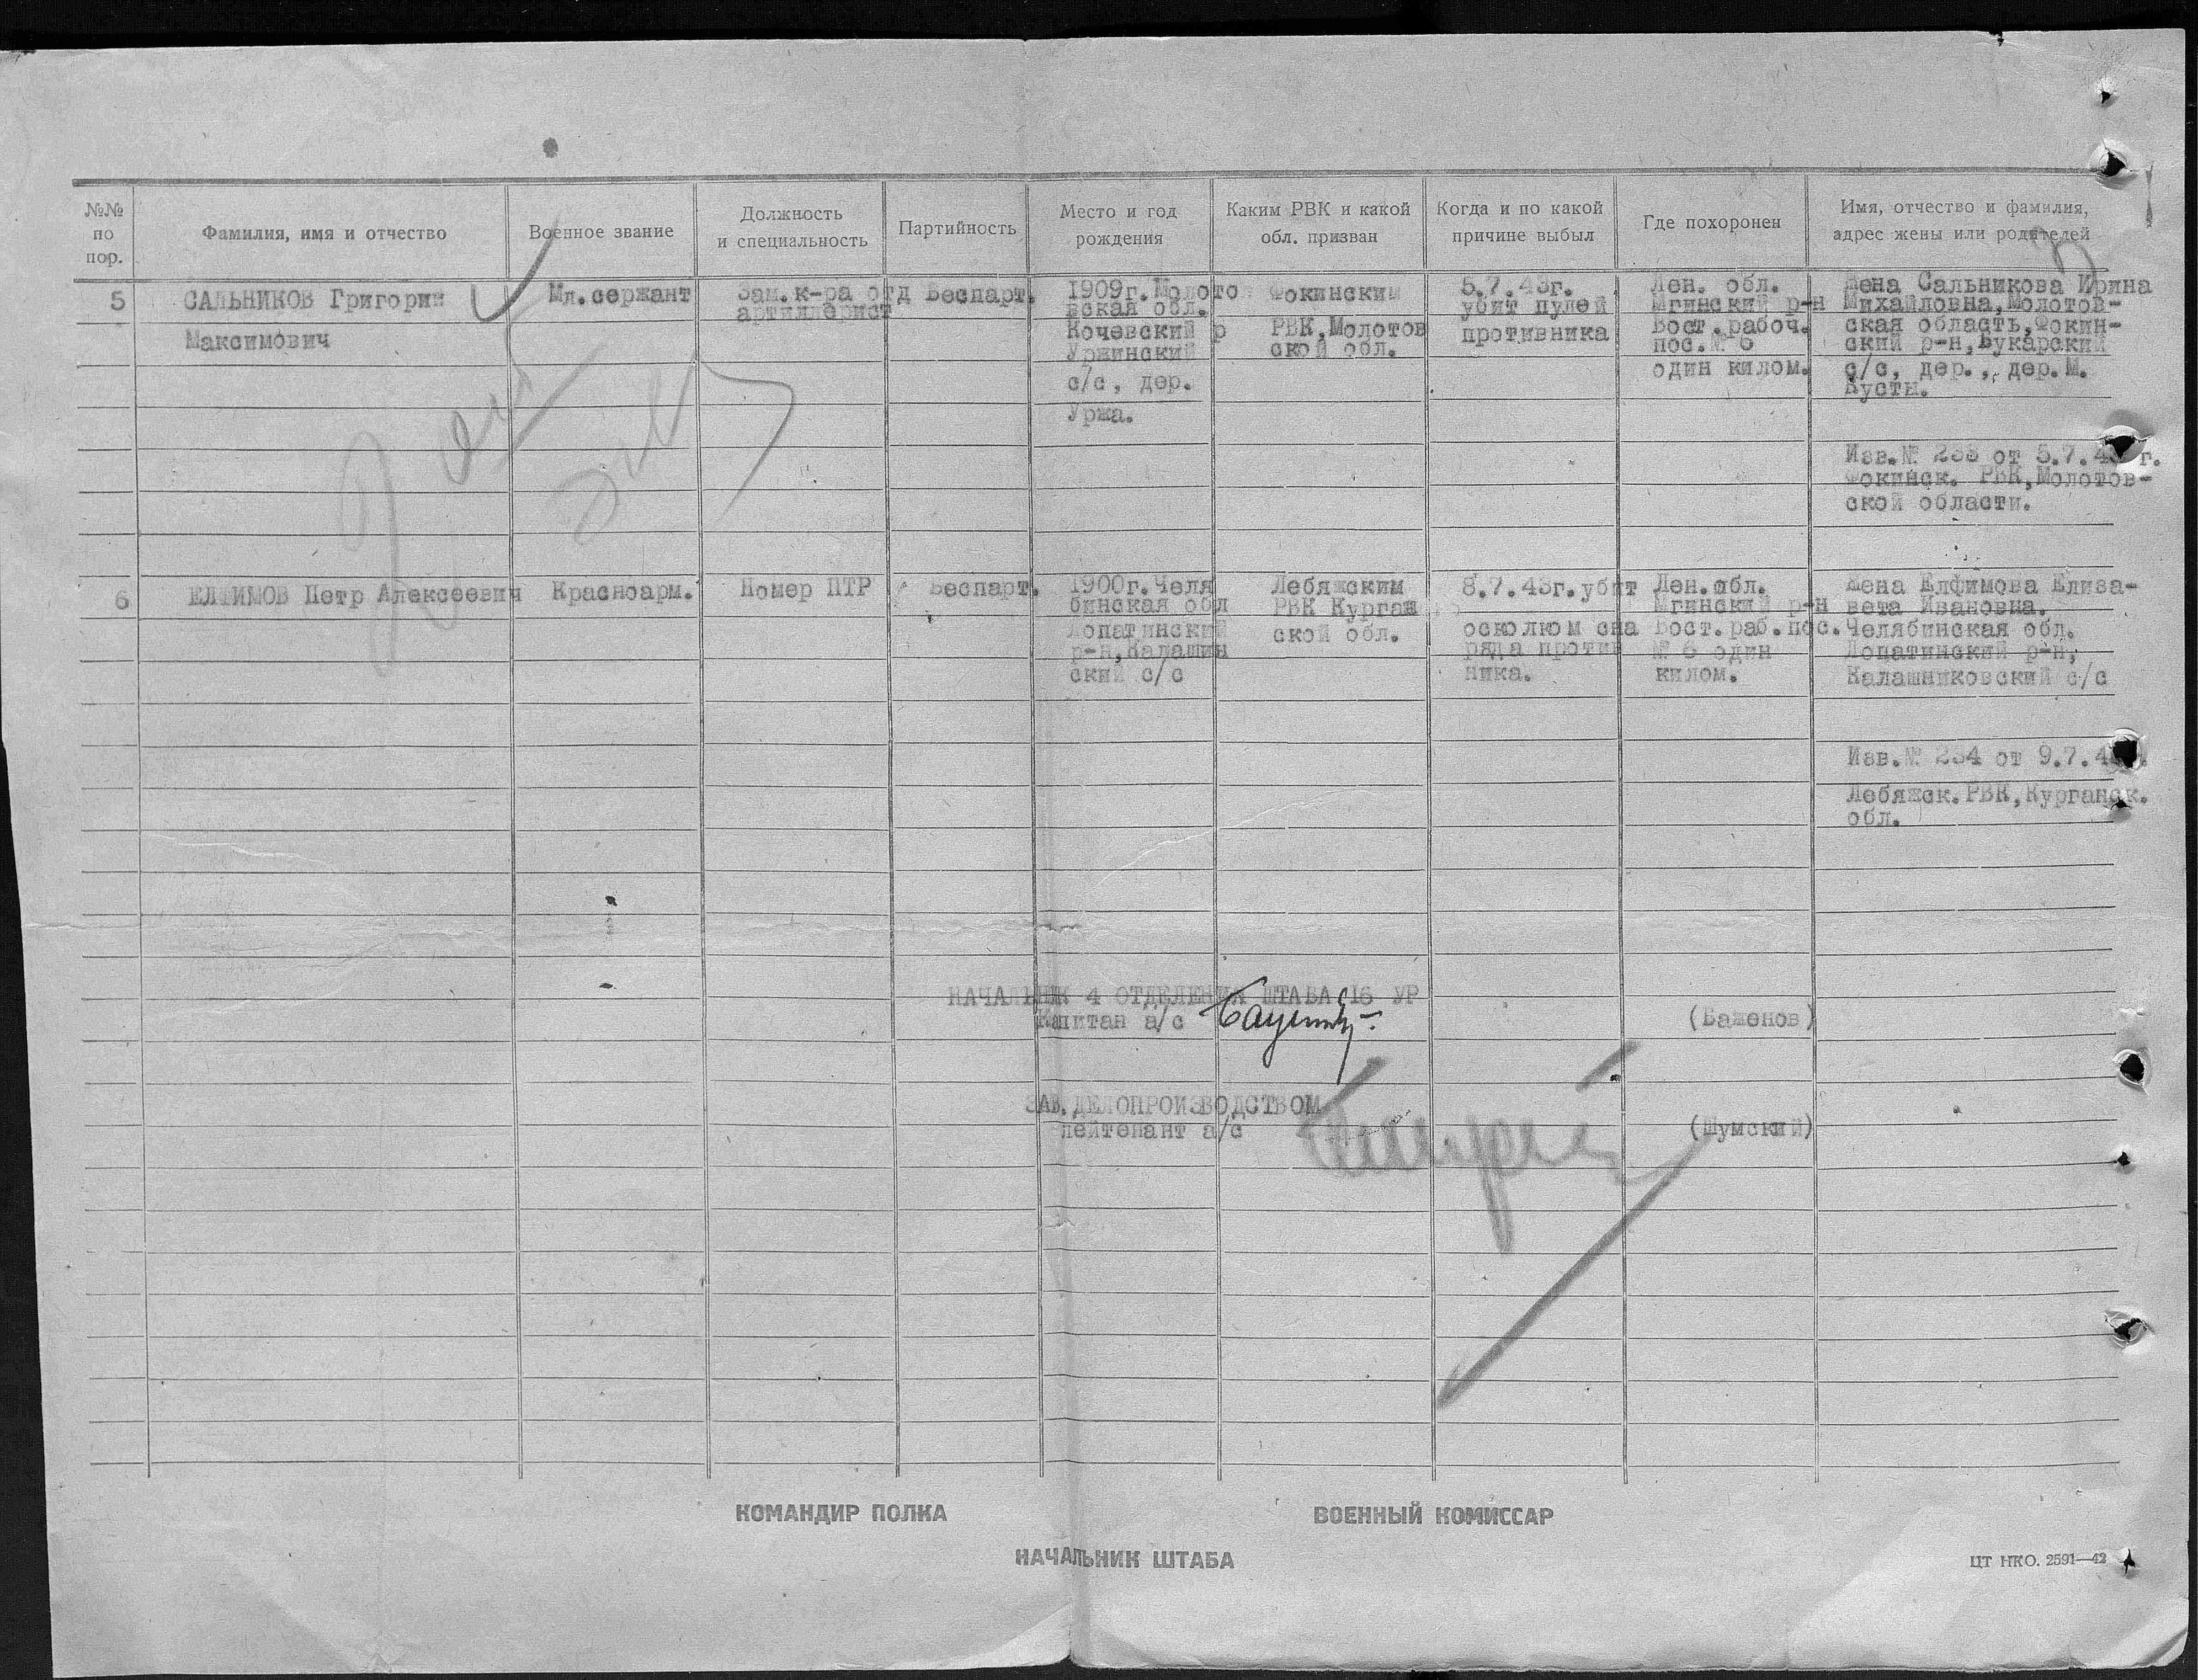 №№ по пор.
Фамилия, имя и отчество
Военное звание
Должность и специальность
Партийность
Место и год рождения
Каким РВК и какой обл. призван
Когда и по какой причине выбыл
Где похоронен
Имя, отчество и фамилия, адрес жены или родителей
5
САЛЬНИКОВ Григорий
Максимович
Мл.сержант
Зам.к-ра отд
артиллерист
Беспарт.
1909г.Молото
вская обл.
Кочевский р
Уржинский
с/с, дер.
Уржа.
Фокинским
РВК,Молотов
ской обл.
5.7.43г.
убит пулей
противника
Лен. обл.
Мгинский р-н
Вост.рабоч.
пос.№ 6
один килом.
Жена Сальникова Ирина
Михайловна,Молотов-
ская область,Фокин-
ский р-н,Букарский
с/с, дер., дер.М.
Кусты.
Изв.№ 233 от 5.7.43 г.
Фокинск. РВК,Молотов-
ской области.
6
ЕЛФИМОВ Петр Алексеевич
Красноарм.
Номер ПТР
Беспарт.
1900г.Челя
бинская обл
Лопатинский
р-н,Калашин
ский с/с
Лебяжским
РВК Курган
ской обл.
8.7.43г.убит
осколком сна
ряда против
ника.
Лен.обл.
Мгинский р-н
Вост.раб.пос.
№ 6 один
килом.
Жена Елфимова Елиза-
вета Ивановна.
Челябинская обл.
Лопатинский р-н,
Калашниковский с/с
Изв.№ 234 от 9.7.4
Лебяжск.РВК,Курганск.
обл.
НАЧАЛЬНИК 4 ОТДЕЛЕНИЯ ШТАБА 16 УР
Капитан а/с
(Баженов)
ЗАВ.ДЕЛОПРОИЗВОДСТВОМ
лейтенант а/с
(Шумский)
КОМАНДИР ПОЛКА
ВОЕННЫЙ КОМИССАР
НАЧАЛЬНИК ШТАБА
ЦТ НКО. 2591—42